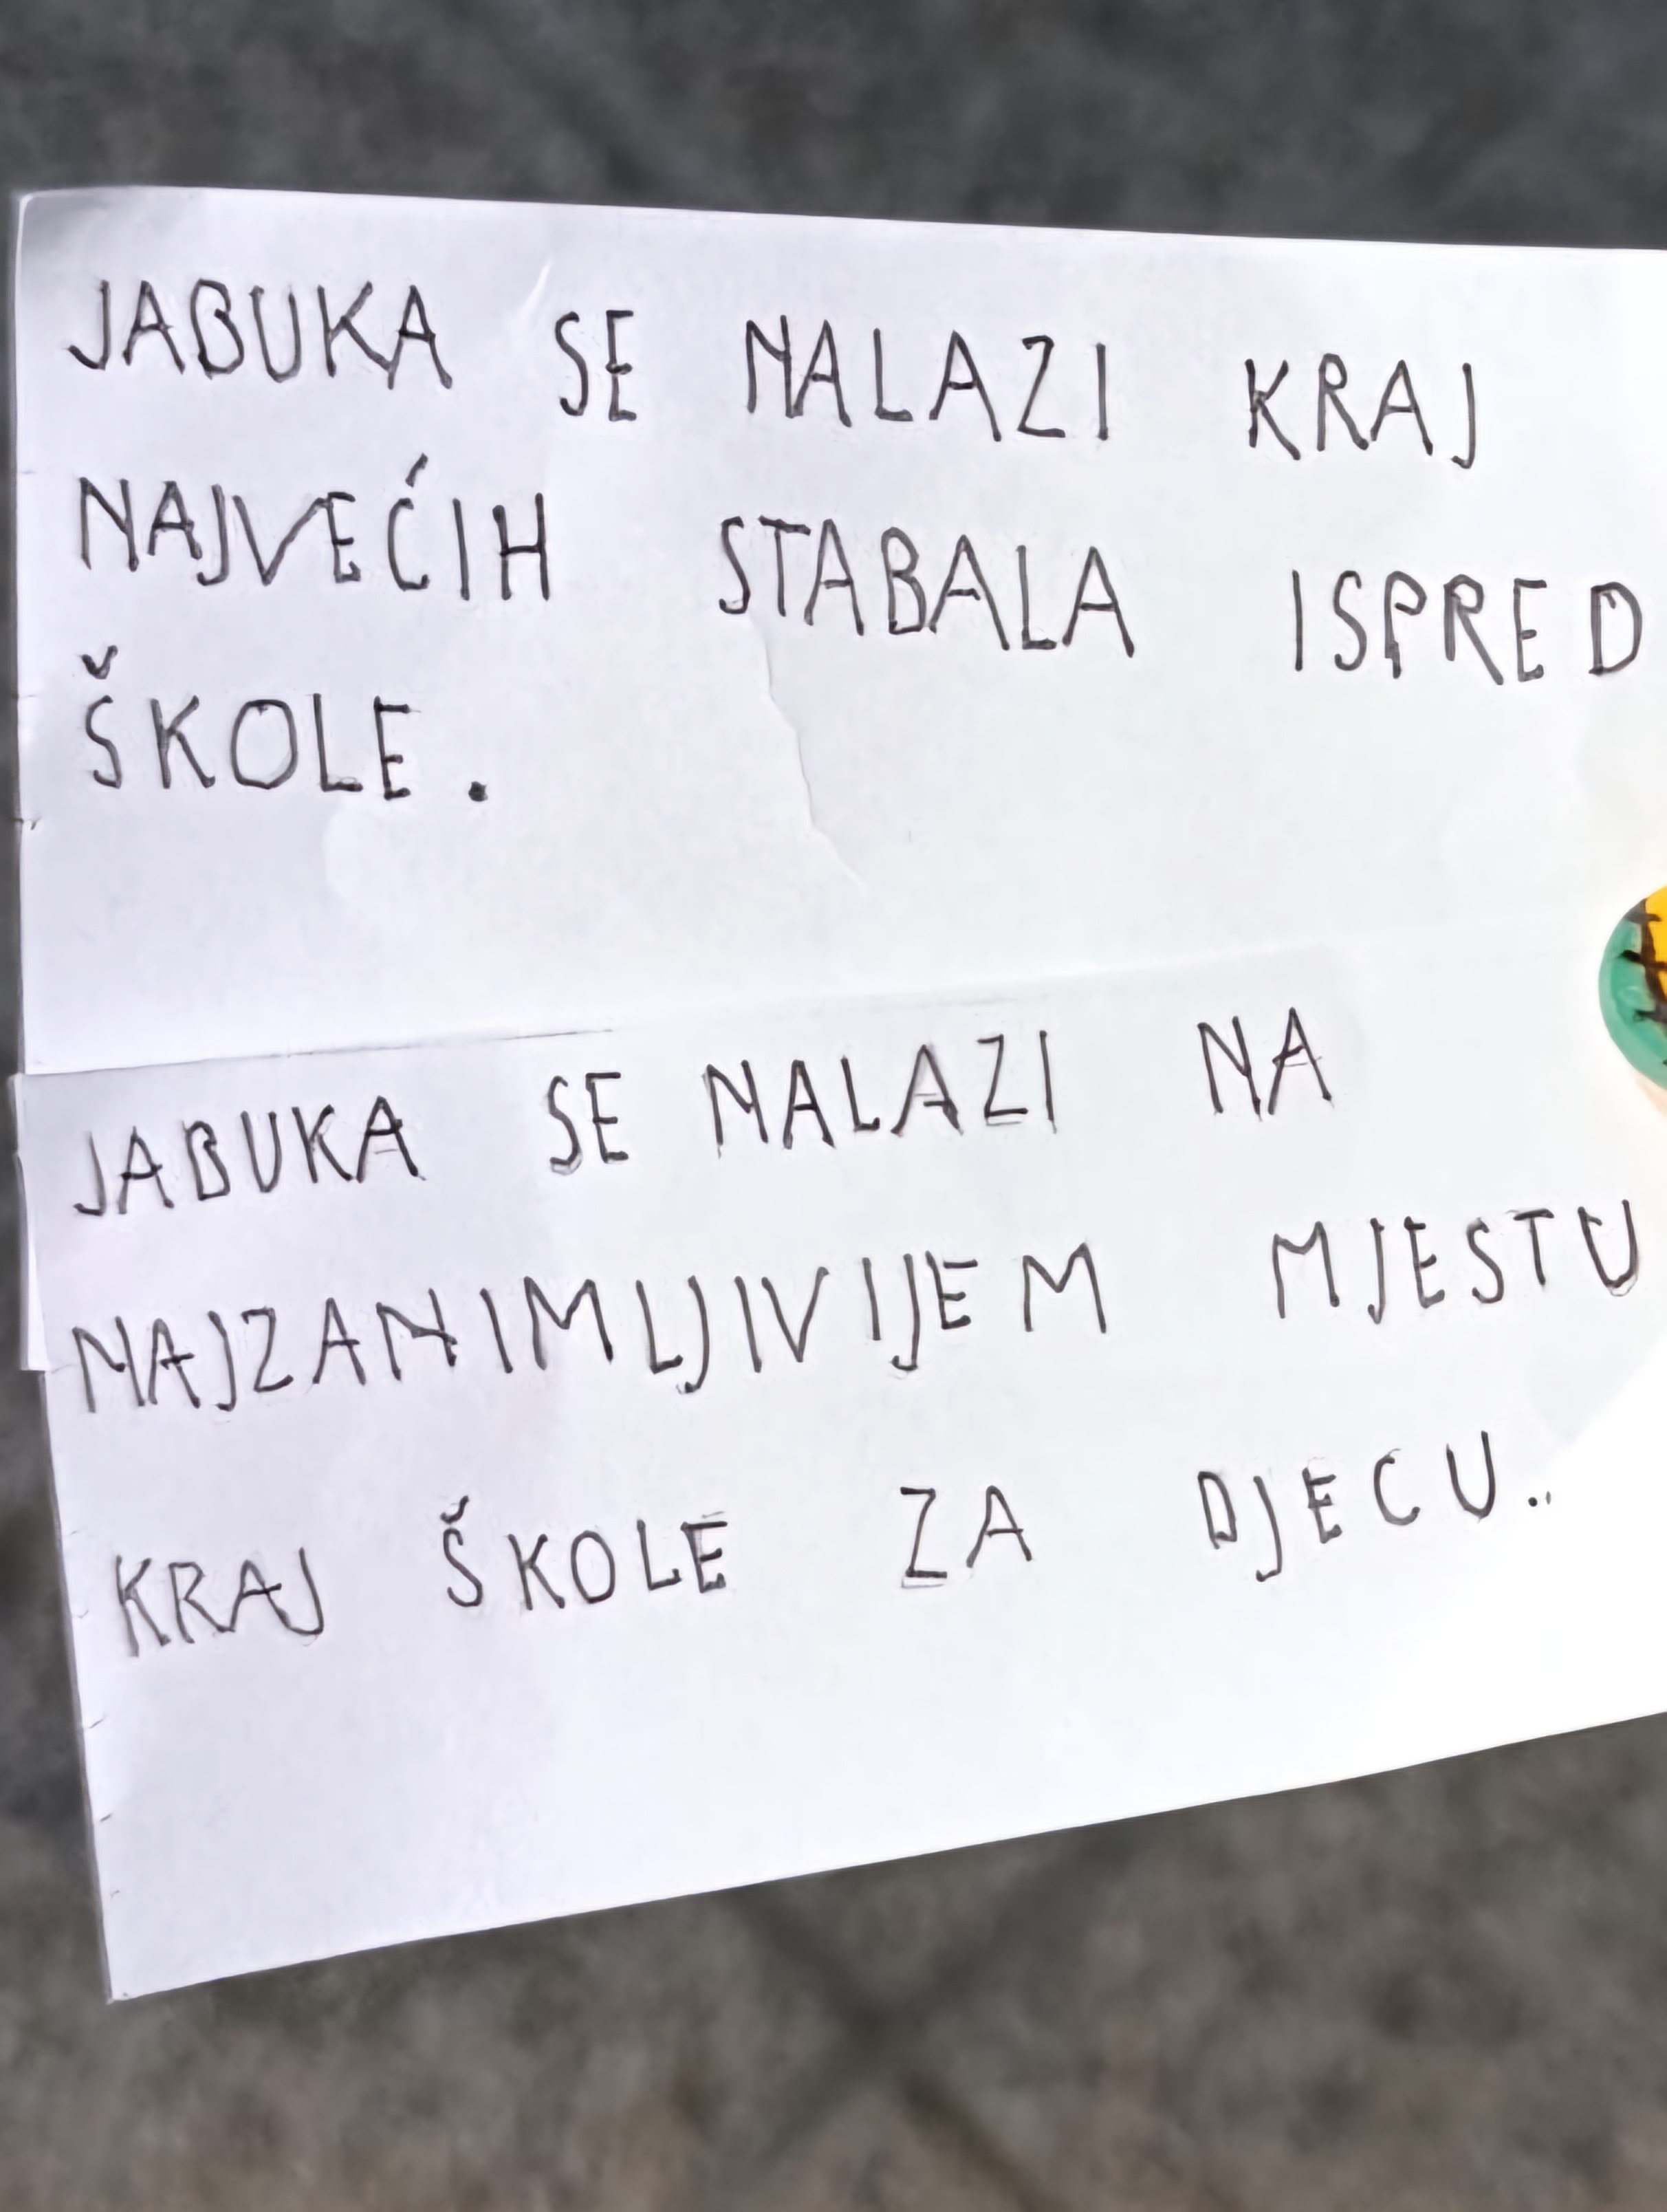 JABUKA SE NALAZI KRAJ
NAJVEĆIH STABALA ISPRED
ŠKOLE.
JABUKA SE NALAZI NA
NAJZANIMLJIVIJEM MJESTU
KRAJ ŠKOLE ZA DJECU..